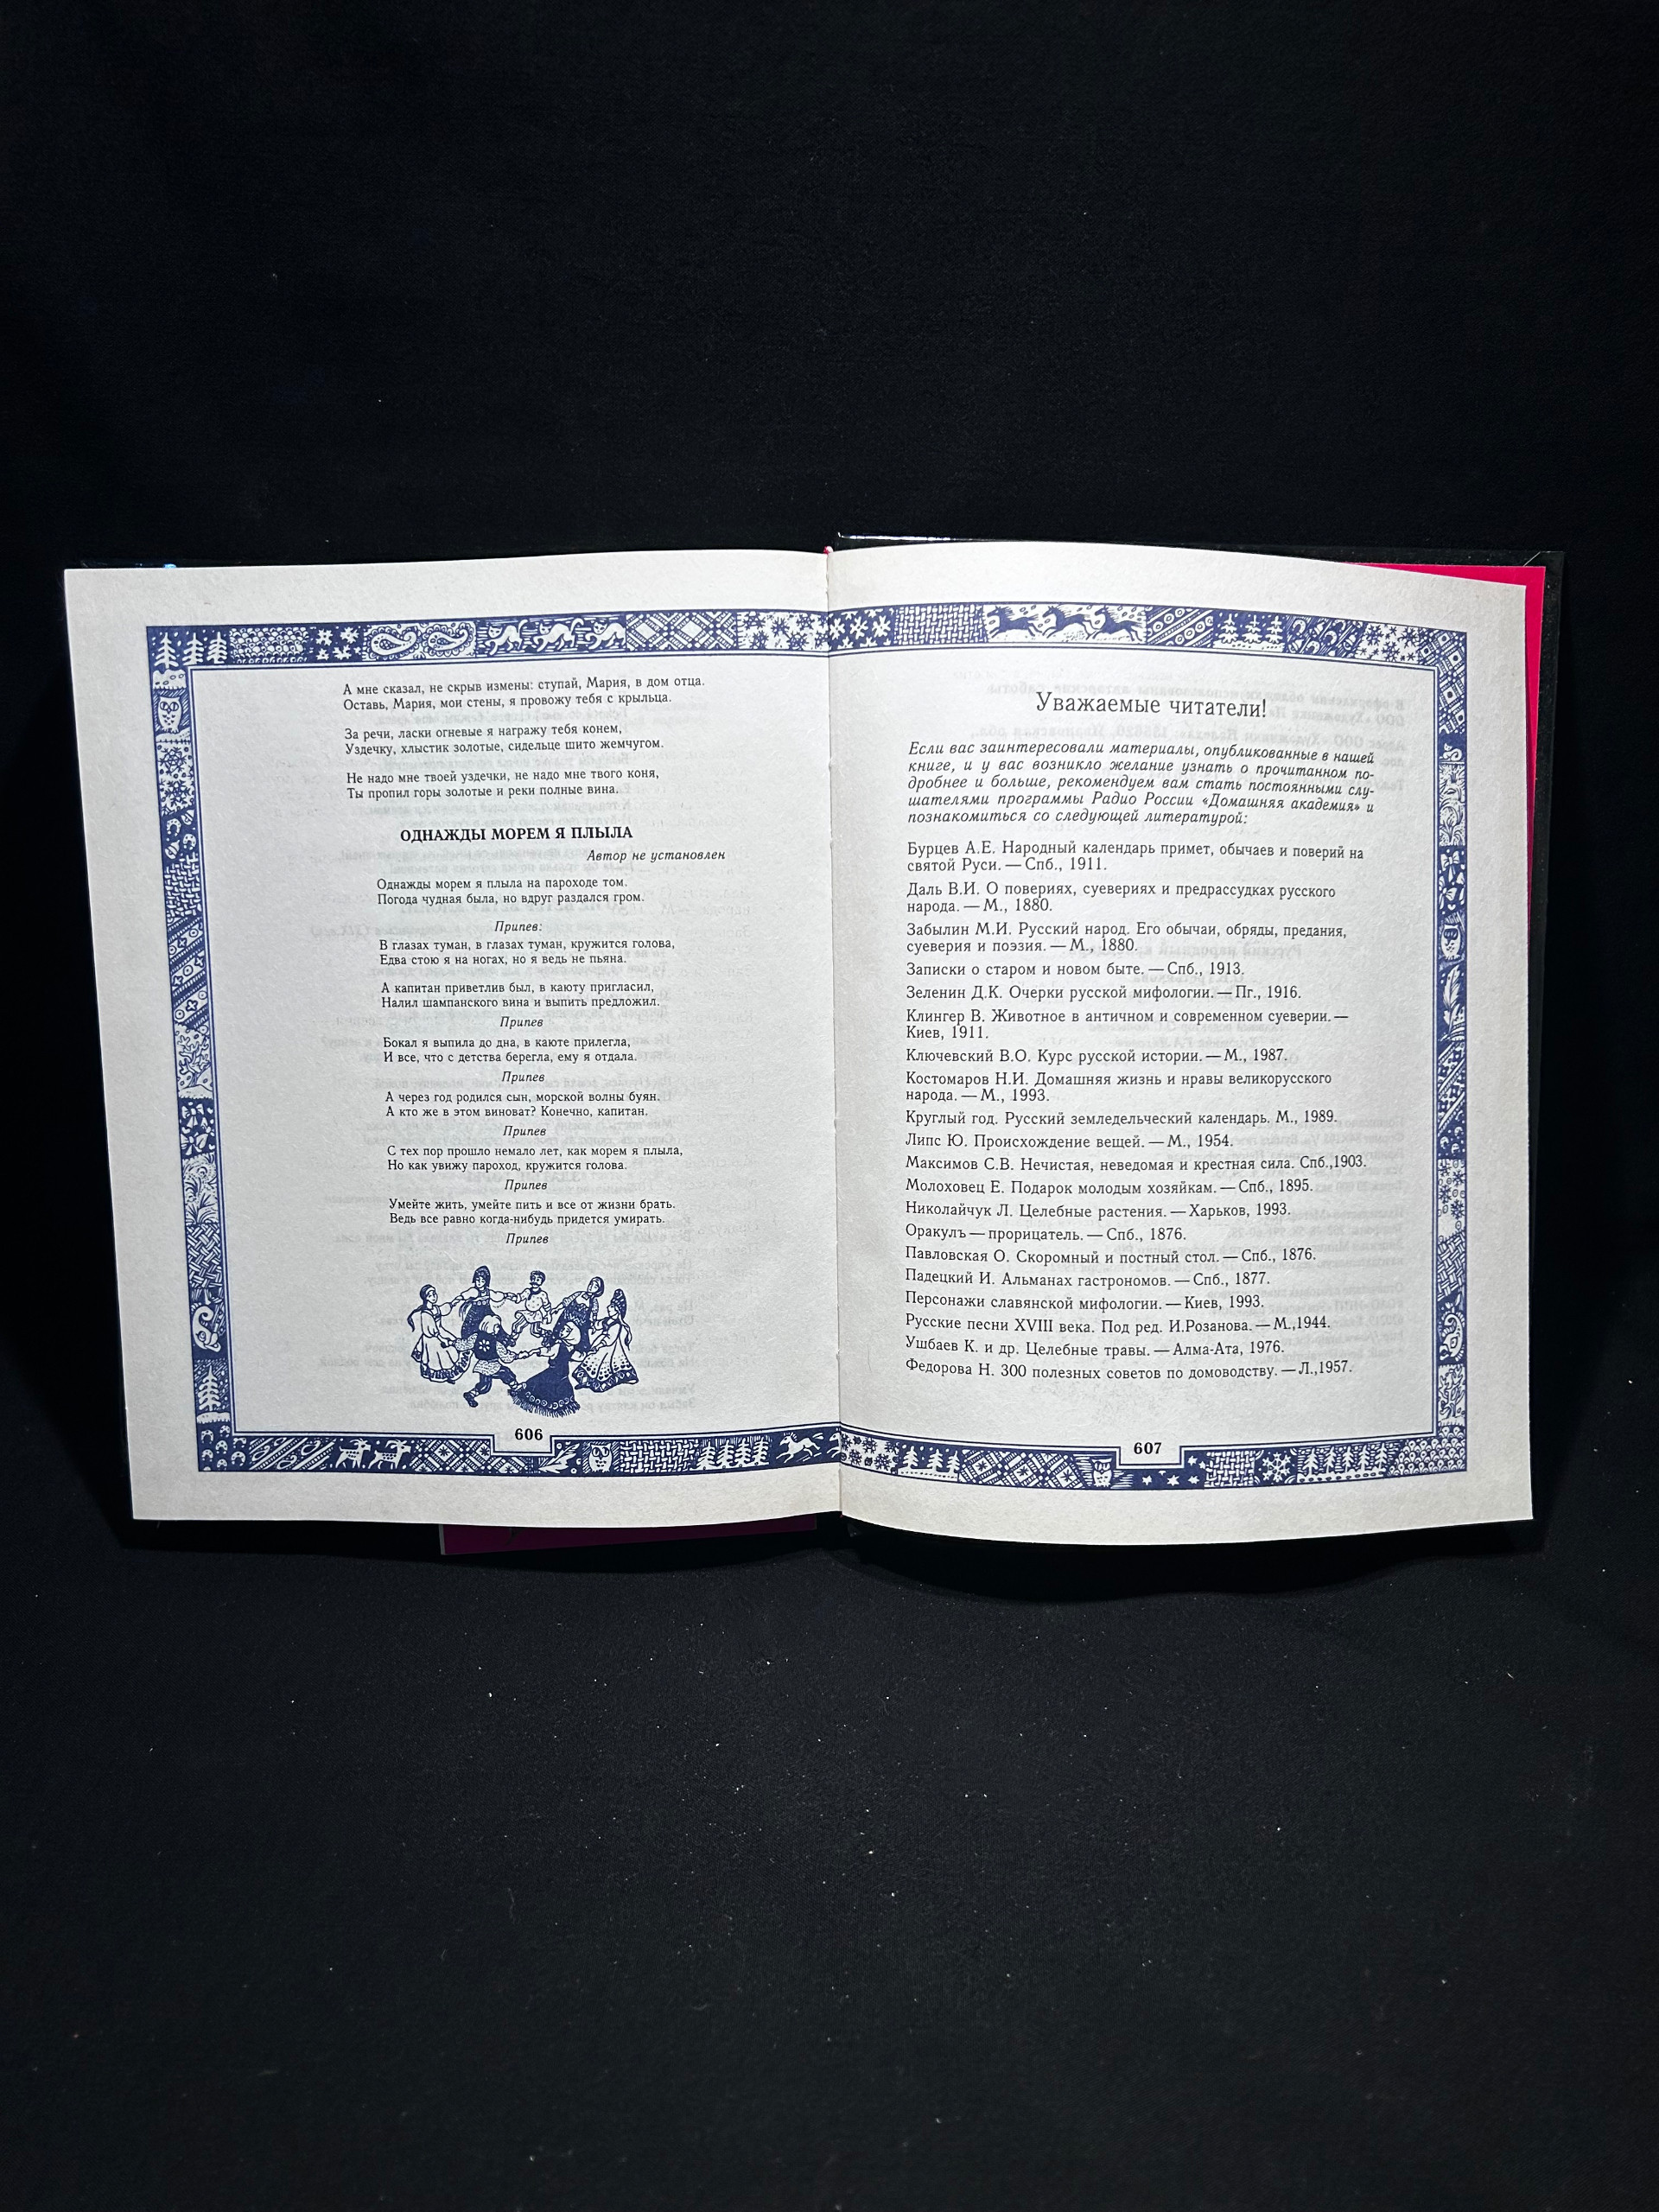 А мне сказал, не скрыв измены: ступай, Мария, в дом отца.
Оставь, Мария, мои стены, я провожу тебя с крыльца.
За речи, ласки огневые я награжу тебя конем,
Уздечку, хлыстик золотые, сидельце шито жемчугом.
Не надо мне твоей уздечки, не надо мне твого коня,
Ты пропил горы золотые и реки полные вина.
ОДНАЖДЫ МОРЕМ Я ПЛЫЛА
Автор не установлен
Однажды морем я плыла на пароходе том.
Погода чудная была, но вдруг раздался гром.
Припев:
В глазах туман, в глазах туман, кружится голова,
Едва стою я на ногах, но я ведь не пьяна.
А капитан приветлив был, в каюту пригласил,
Налил шампанского вина и выпить предложил.
Припев
Бокал я выпила до дна, в каюте прилегла,
И все, что с детства берегла, ему я отдала.
Припев
А через год родился сын, морской волны буян.
А кто же в этом виноват? Конечно, капитан.
Припев
С тех пор прошло немало лет, как морем я плыла,
Но как увижу пароход, кружится голова.
Припев
Умейте жить, умейте пить и все от жизни брать.
Ведь все равно когда-нибудь придется умирать.
Припев
606
Уважаемые читатели!
Если вас заинтересовали материалы, опубликованные в нашей
книге, и у вас возникло желание узнать о прочитанном по-
дробнее и больше, рекомендуем вам стать постоянными слу-
шателями программы Радио России «Домашняя академия» и
познакомиться со следующей литературой:
Бурцев А.Е. Народный календарь примет, обычаев и поверий на
святой Руси. — Спб., 1911.
Даль В.И. О повериях, суевериях и предрассудках русского
народа. — М., 1880.
Забылин М.И. Русский народ. Его обычаи, обряды, предания,
суеверия и поэзия. — М., 1880.
Записки о старом и новом быте. — Спб., 1913.
Зеленин Д.К. Очерки русской мифологии. — Пг., 1916.
Клингер В. Животное в античном и современном суеверии. —
Киев, 1911.
Ключевский В.О. Курс русской истории. — М., 1987.
Костомаров Н.И. Домашняя жизнь и нравы великорусского
народа. — М., 1993.
Круглый год. Русский земледельческий календарь. М., 1989.
Липс Ю. Происхождение вещей. — М., 1954.
Максимов С.В. Нечистая, неведомая и крестная сила. Спб.,1903.
Молоховец Е. Подарок молодым хозяйкам. — Спб., 1895.
Николайчук Л. Целебные растения. — Харьков, 1993.
Оракулъ — прорицатель. — Спб., 1876.
Павловская О. Скоромный и постный стол. — Спб., 1876.
Падецкий И. Альманах гастрономов. — Спб., 1877.
Персонажи славянской мифологии. — Киев, 1993.
Русские песни XVIII века. Под ред. И.Розанова. — М.,1944.
Ушбаев К. и др. Целебные травы. — Алма-Ата, 1976.
Федорова Н. 300 полезных советов по домоводству. — Л.,1957.
607